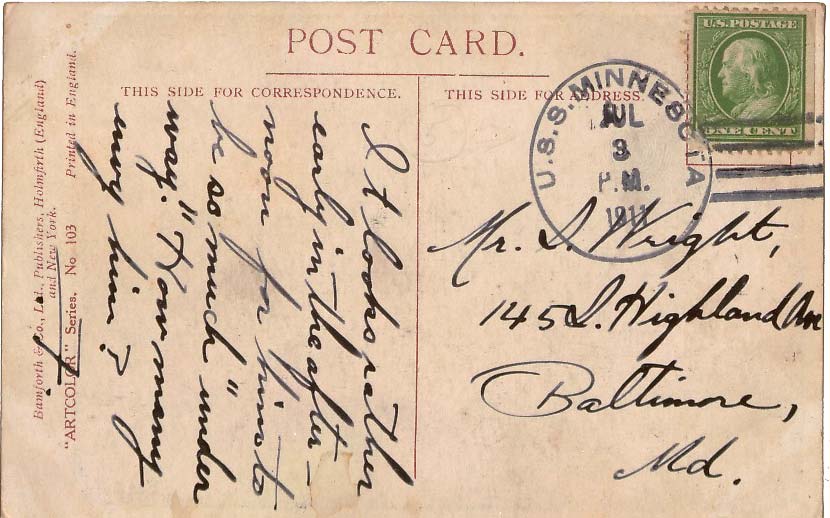 POST CARD.
THIS SIDE FOR CORRESPONDENCE.
THIS SIDE FOR ADDRESS.
U.S. POSTAGE
ONE CENT
U.S.S. MINNESOTA
JUL
3
P.M.
1911
It looks rather
early in the after-
noon for him to
be so much "under
way." How many
envy him?
Mr. S. Wright,
145 S. Highland Ave
Baltimore,
Md.
Bamforth & Co., Ltd., Publishers, Holmfirth (England)
and New York.
"ARTCOLOR" Series. No 103 Printed in England.